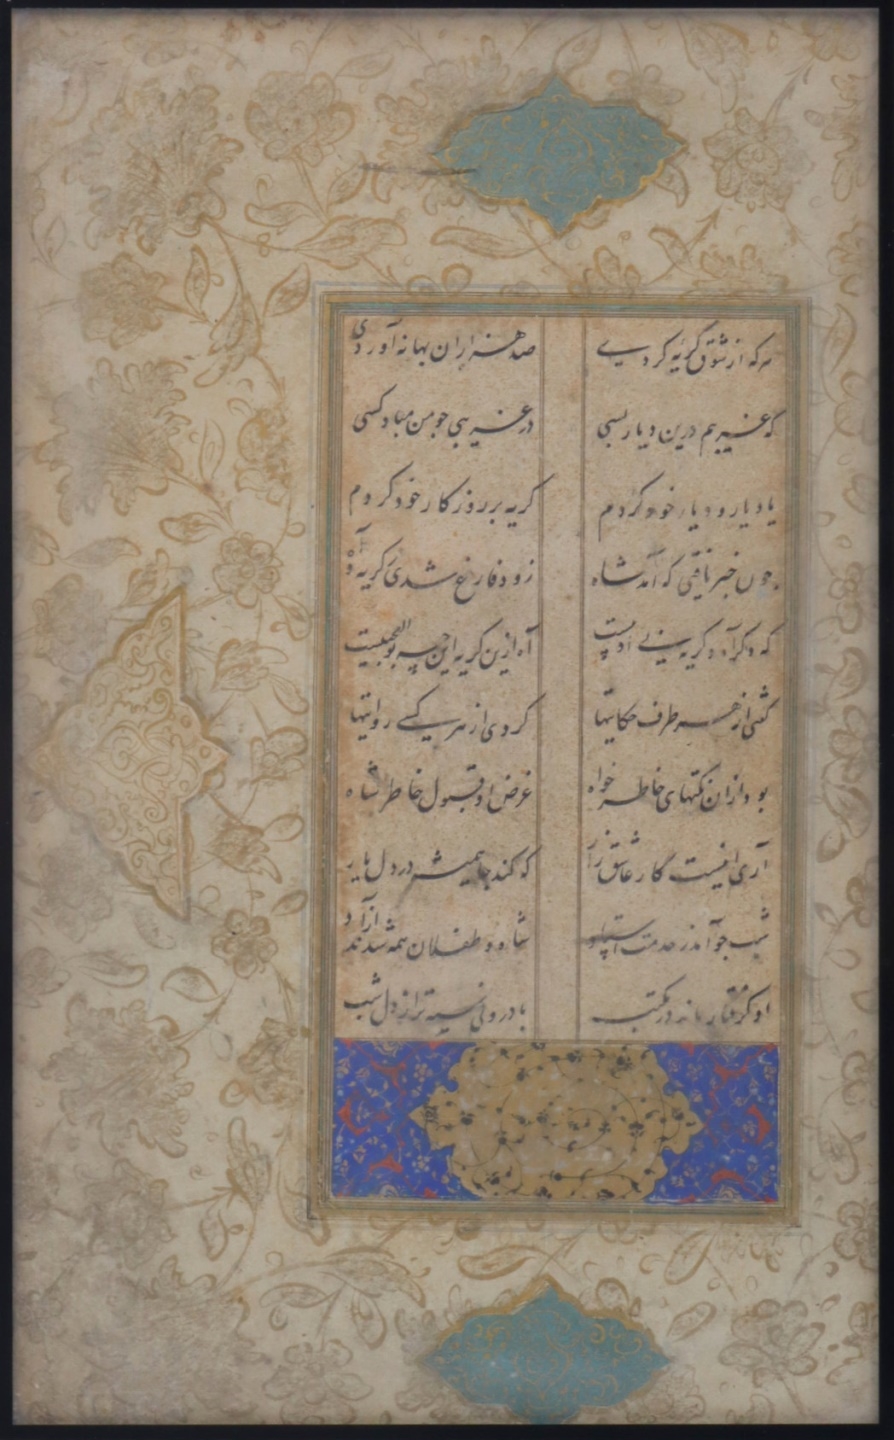 هر که از شوق گریه کردی صد هزاران بهانه آوردی
که غریبم درین دیار بسی در غریبی چو من مباد کسی
یاد یار و دیار خود کردم گریه بر روزگار خود کردم
چون خبر یافتی که آمد شاه زود فارغ شدی ز گریه و آه
که دگر آه و گریه بی ادبیست آه ازین گریه این چه بوالعجبیست
گفتی از هر طرف حکایتها کردی از هر کسی روایتها
بود ازان نکتهای خاطر خواه غرض او قبول خاطر شاه
آری اینست کار عاشق زار که کند جا همیشه در دل یار
شب چو آمد ز خدمت استاد شاه و طفلان همه شدند آزاد
او گرفتار ماند در مکتب با درونی سیه تر از دل شب